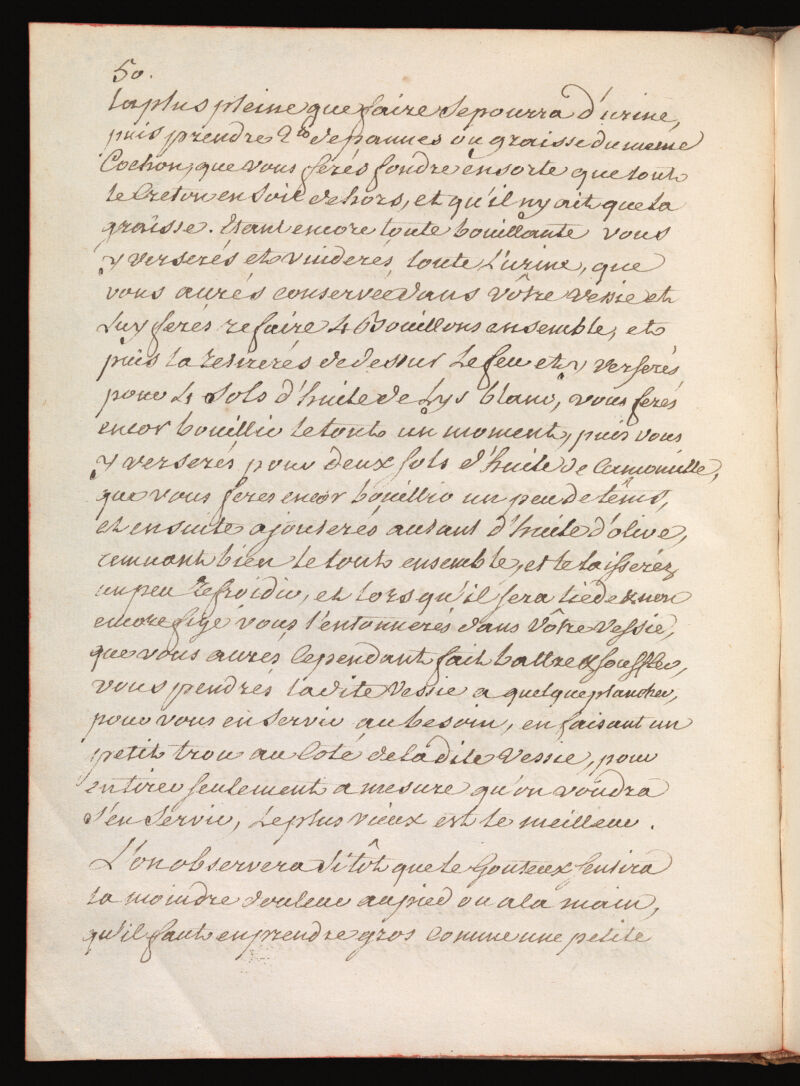 50.
la plus pleine que faire se pourra d'urine,
puis prendre 2 lb de pannes ou graisse du même
Cochon, que vous ferés fondre ensorte que tout
le Creton en soit dehors, et qu'il n'y ait que la
graisse. Etant encore toute bouillante vous
y verserés et vuiderés toute l'urine, que
vous aurés conservée dans vôtre vessie et
Luy ferés refaire 4 Bouillons ensemble, et
puis la retirerés de dessur le feu et y verserés
pour 4 sols d'huile de Lys blanc, vous ferés
encor bouillir le tout un moment, puis vous
y verserés pour deux sols d'huile de Camomille,
que vous ferés encor bouillir un peu de têms,
et ensuite ajouterés autant d'huile d'olive,
remuant bien le tout ensemble, et le laisseréz
un peu refroidir, et lors qu'il sera tiede & non
encore figé vous l'entonnerés dans vôtre vessie,
que vous aurés cependant fait battre & souffler,
vous pendrés la dite vessie a quelque plancher,
pour vous en servir au besoin, en faisant un
petit trou au Coté de la dite vessie, pour
en tirer seulement a mesure qu'on voudra
s'en servir, le plus vieux est le meilleur.
L'on observera sitôt que le Gouteux sentira
la moindre douleur au pied ou a la main,
qu'il faut en prendre gros comme une petite